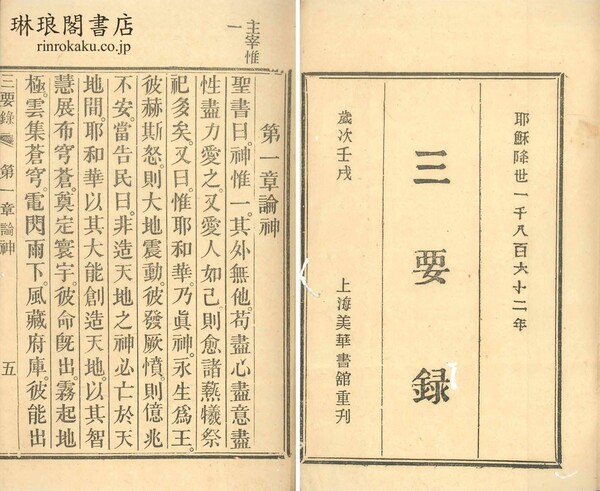 琳琅閣書店
rinrokaku.co.jp
耶穌降世一千八百六十二年
三要録
歲次壬戌
上海美華書館重刋
主宰惟
一
第一章論神
聖書曰。神惟一。其外無他。苟盡心盡意盡
性盡力愛之。又愛人如己。則愈諸爇犧祭
祀多矣。又曰。惟耶和華。乃眞神。永生爲王。
彼赫斯怒。則大地震動。彼發厥憤。則億兆
不安。當告民曰。非造天地之神。必亡於天
地間。耶和華以其大能創造天地。以其智
慧展布穹蒼。奠定寰宇。彼命旣出。霧起地
極。雲集蒼穹。電閃雨下。風藏府庫。彼能出
三要錄 第一章論神 五